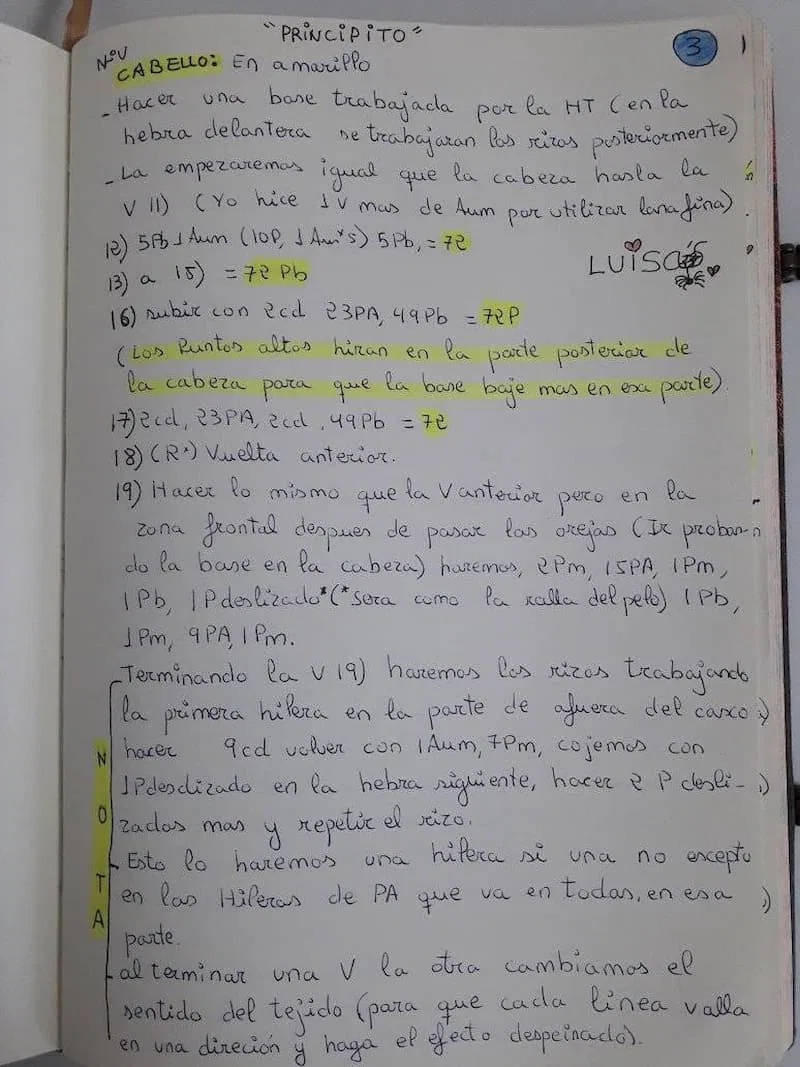 "PRINCIPITO"
3
NºV
CABELLO: En amarillo
- Hacer una base trabajada por la HT (en la
hebra delantera se trabajaran los rizos posteriormente)
- La empezaremos igual que la cabeza hasta la
V 11) (Yo hice 1V mas de Aum por utilizar lana fina).
12) 5Pb 1 Aum (10P, 1 Aum*5) 5Pb, = 72
LUISO
13) a 15) = 72 Pb
16) subir con 2cd 23PA, 49Pb = 72P
(Los Puntos altos hiran en la parte posterior de
la cabeza para que la base baje mas en esa parte)
17) 2cd, 23PA, 2cd, 49Pb = 72
18) (R*) Vuelta anterior.
19) Hacer lo mismo que la V anterior pero en la
zona frontal despues de pasar las orejas (Ir proban-
do la base en la cabeza) haremos, 2Pm, 15PA, 1Pm,
1Pb, 1P deslizado* (*Sera como la ralla del pelo) 1Pb,
1Pm, 9PA, 1Pm.
NOTA
Terminando la V 19) haremos los rizos trabajando
la primera hilera en la parte de afuera del casco
hacer 9cd volver con 1Aum, 7Pm, cojemos con
1P desclizado en la hebra siguiente, hacer 2 P desli-
zados mas y repetir el rizo.
- Esto lo haremos una hilera si una no escepto
en las Hileras de PA que va en todas, en esa
parte.
- al terminar una V la otra cambiamos el
sentido del tejido (para que cada linea valla
en una direción y haga el efecto despeinado).